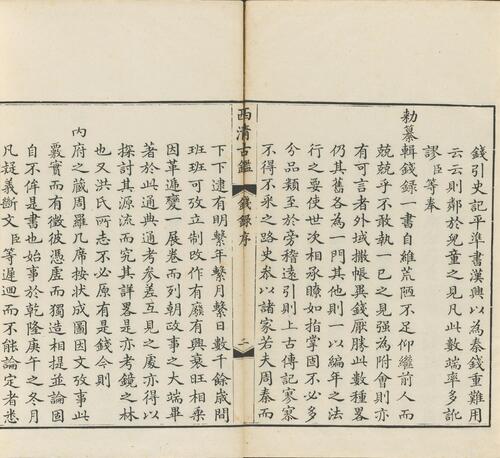 錢引史記平準書漢興以為秦錢重難用
云云則鄰於兒童之見凡此數端率多訛
謬臣等奉
勅纂輯錢錄一書自維荒陋不足仰繼前人而
兢兢乎不敢執一已之見强為附會則亦
有可言者外域撒帳異錢厭勝此數種畧
仍其舊各為一門其他則一以編年之法
行之要使世次相承瞭如指掌固不必多
分品類至於旁稽遠引則上古傳記寥寥
不得不采之路史叅以諸家若夫周秦而
西清古鑑
錢錄序
二
下下逮有明繫年繫月繫日數千餘歲間
班班可攷立制改作有廢有興衰旺相乘
因革遞變一展卷而列朝政事之大端畢
著於此通典通考參差互見之處亦得以
探討其源流而究其詳畧是亦考鏡之林
也又洪氏所志不必原有是錢今則
内府之藏周羅几席按狀成圖因文攷事此
覈實而有徵彼憑虛而獨造相提並論固
自不侔是書也始事於乾隆庚午之冬月
凡提義斷文臣等遲迴而不能論定者悉